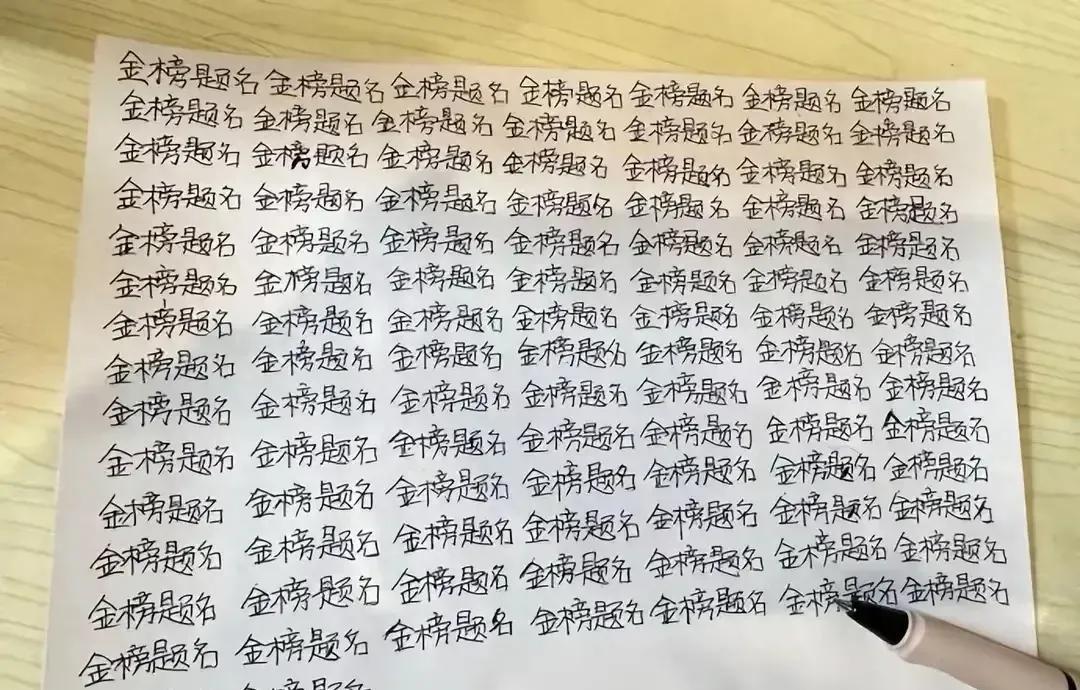 金榜题名 金榜题名 金榜题名 金榜题名 金榜题名 金榜题名 金榜题名
金榜题名 金榜题名 金榜题名 金榜题名 金榜题名 金榜题名 金榜题名
金榜题名 金榜题名 金榜题名 金榜题名 金榜题名 金榜题名 金榜题名
金榜题名 金榜题名 金榜题名 金榜题名 金榜题名 金榜题名 金榜题名
金榜题名 金榜题名 金榜题名 金榜题名 金榜题名 金榜题名 金榜题名
金榜题名 金榜题名 金榜题名 金榜题名 金榜题名 金榜题名 金榜题名
金榜题名 金榜题名 金榜题名 金榜题名 金榜题名 金榜题名 金榜题名
金榜题名 金榜题名 金榜题名 金榜题名 金榜题名 金榜题名 金榜题名
金榜题名 金榜题名 金榜题名 金榜题名 金榜题名 金榜题名 金榜题名
金榜题名 金榜题名 金榜题名 金榜题名 金榜题名 金榜题名 金榜题名
金榜题名 金榜题名 金榜题名 金榜题名 金榜题名 金榜题名 金榜题名
金榜题名 金榜题名 金榜题名 金榜题名 金榜题名 金榜题名 金榜题名
金榜题名 金榜题名 金榜题名 金榜题名 金榜题名 金榜题名 金榜题名
金榜题名 金榜题名 金榜题名 金榜题名 金榜题名 金榜题名 金榜题名